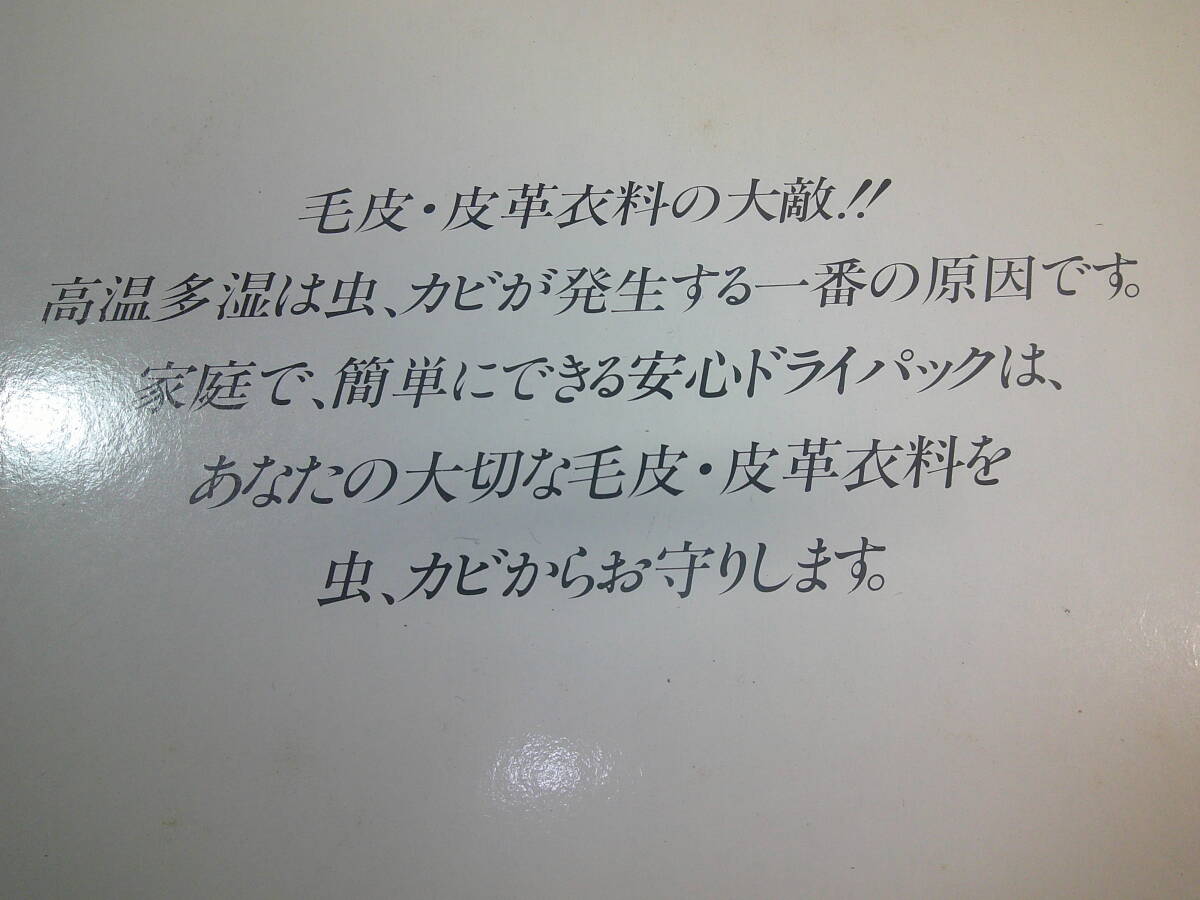 毛皮・皮革衣料の大敵!!
高温多湿は虫、カビが発生する一番の原因です。
家庭で、簡単にできる安心ドライパックは、
あなたの大切な毛皮・皮革衣料を
虫、カビからお守りします。